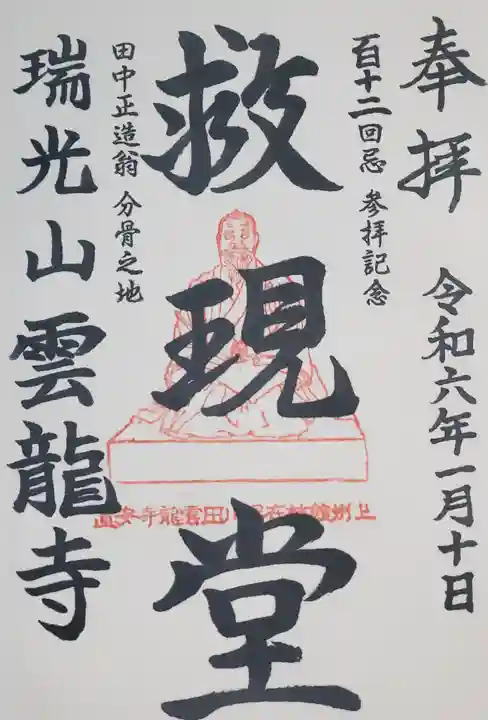 奉拝 令和六年一月十日
百十二回忌 参拝記念
救現堂
田中正造翁 分骨之地
瑞光山雲龍寺